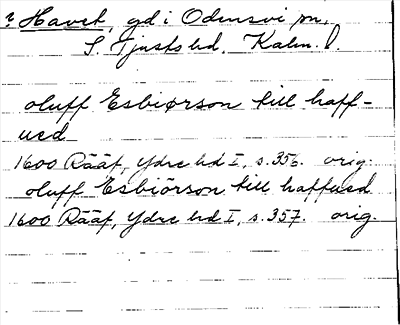 ? Havet, gd i Odensvi sn,
S. Tjusts hd, Kalm. l.
oluff Esbiørson till haff-
ued
1600 Rääf, Ydre hd I, s. 356. orig.
oluff Esbiörson till haffued
1600 Rääf, Ydre hd I, s. 357. orig